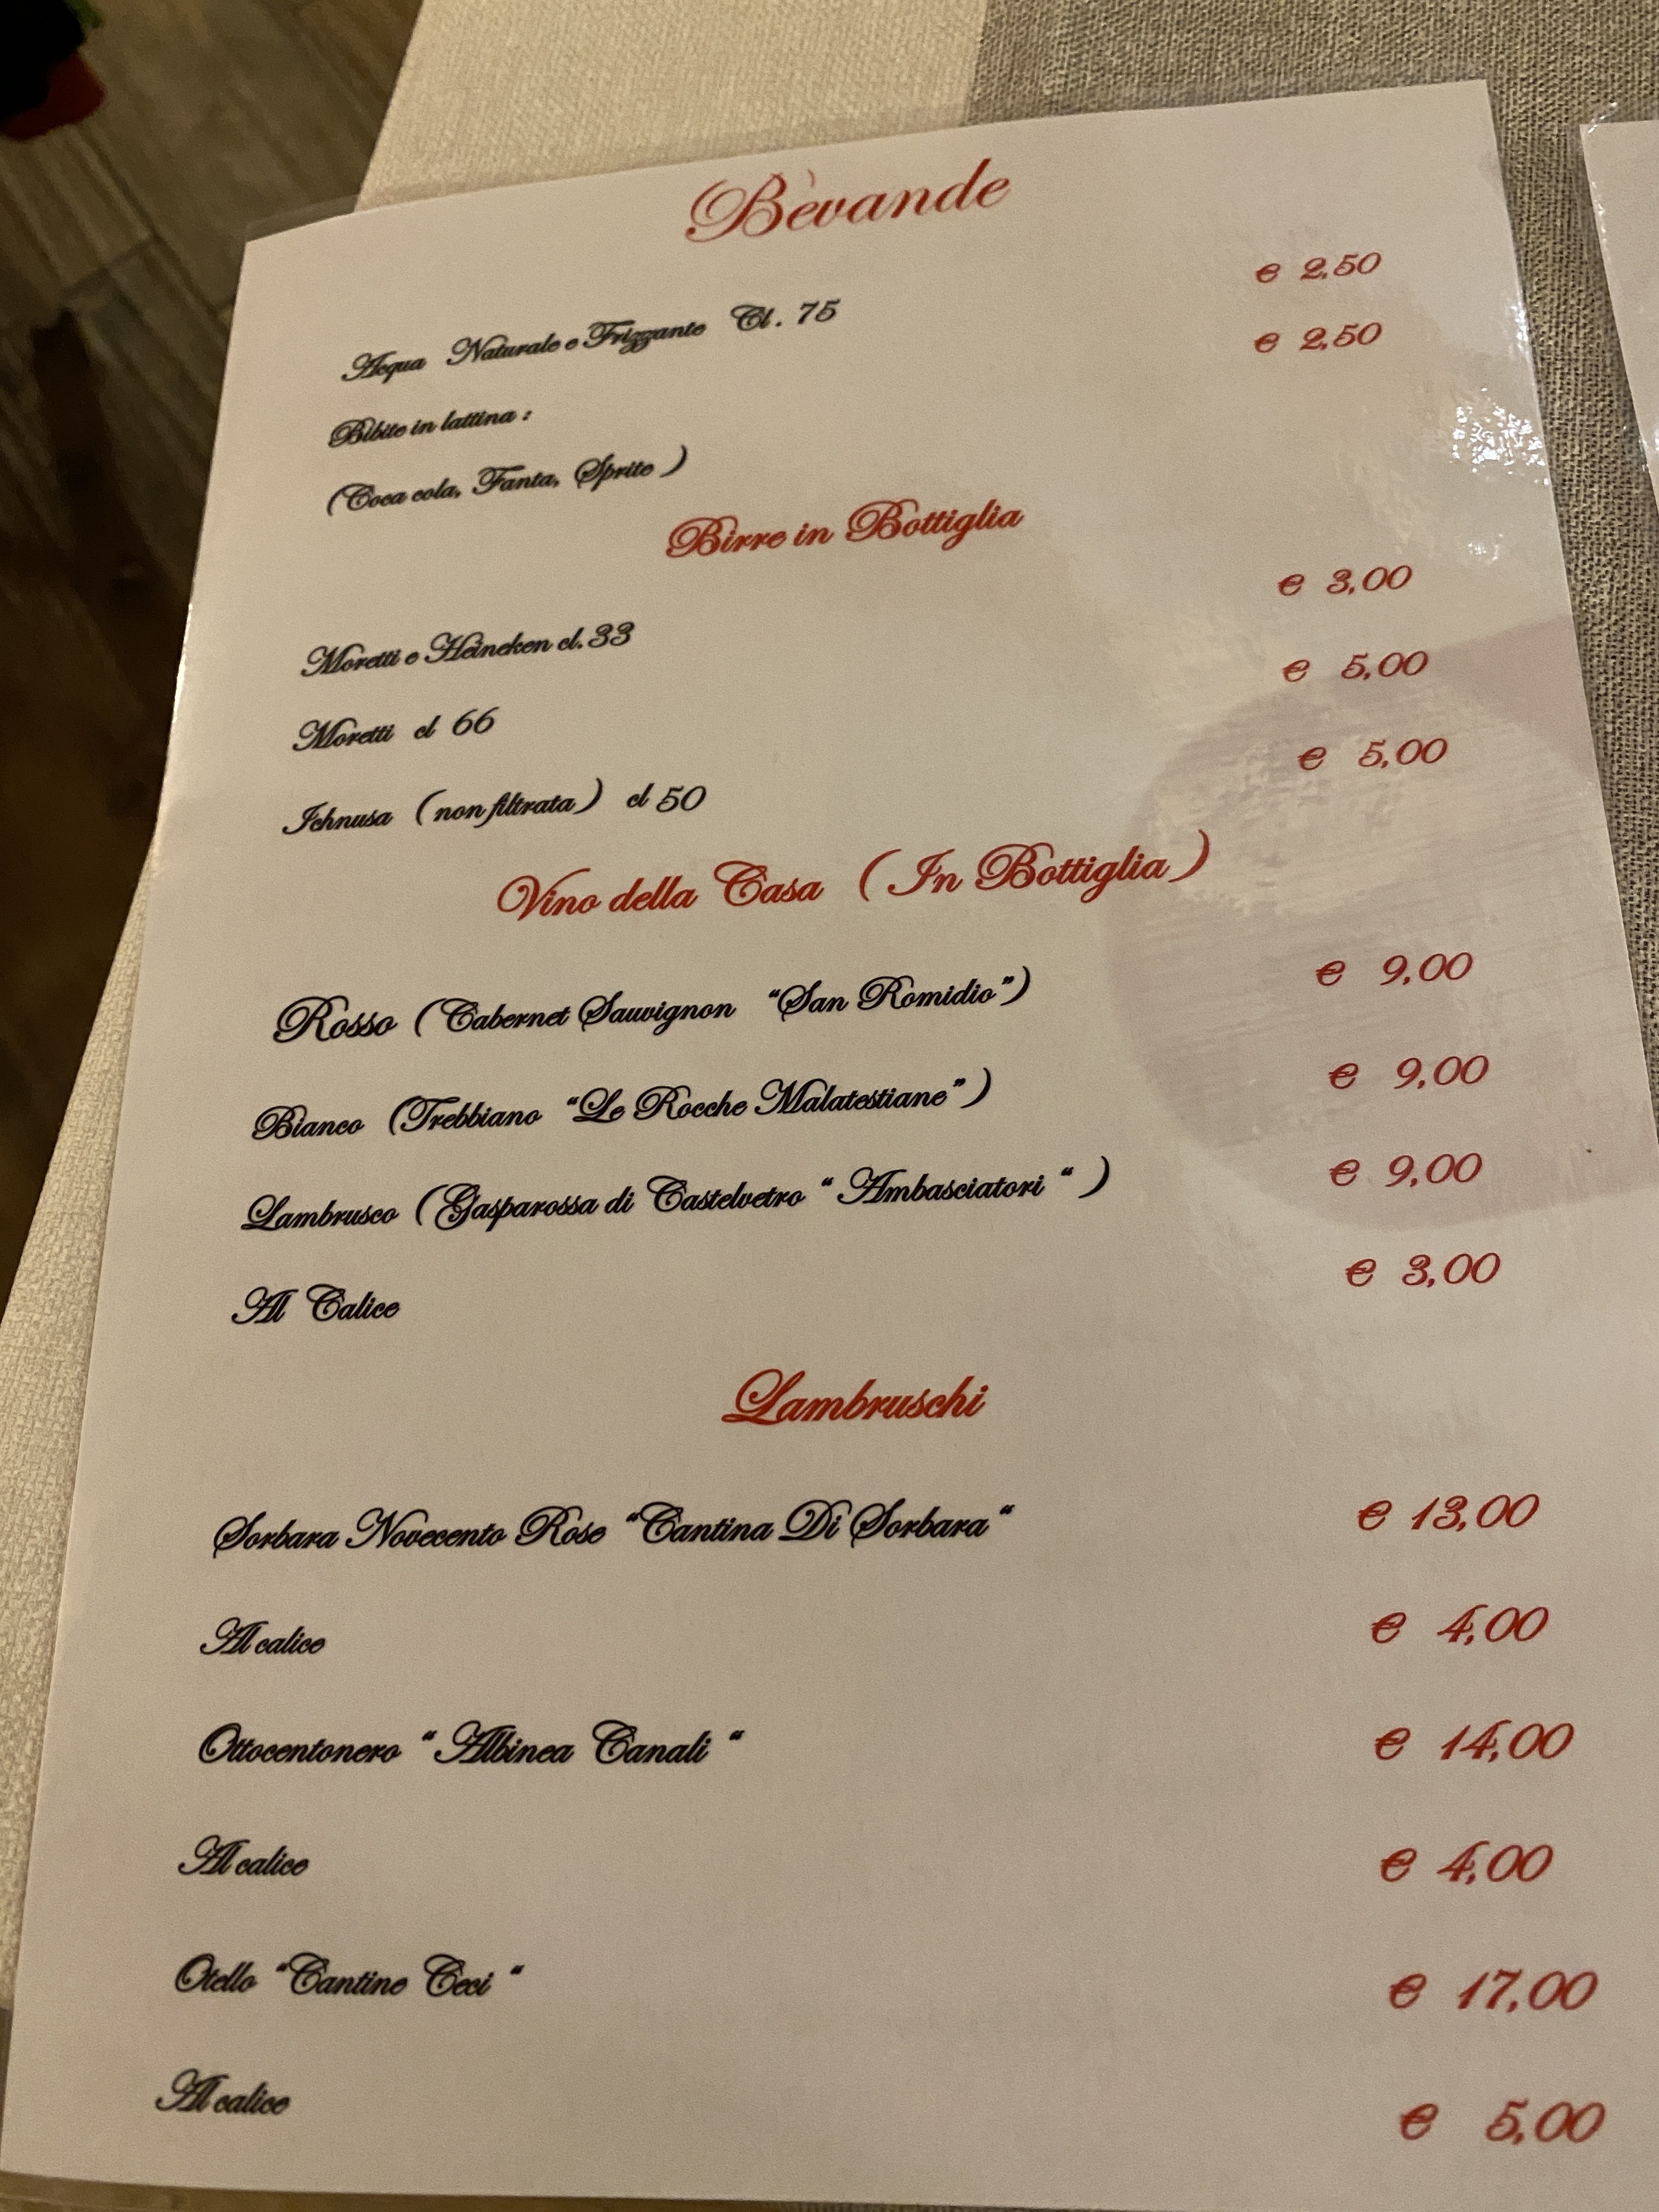 Bevande
Acqua Naturale e Frizzante Cl. 75 € 2,50
Bibite in lattina : € 2,50
(Coca cola, Fanta, Sprite )
Birre in Bottiglia
Moretti e Heineken cl.33 € 3,00
Moretti cl 66 € 5,00
Ichnusa ( non filtrata ) cl 50 € 5,00
Vino della Casa ( In Bottiglia )
Rosso ( Cabernet Sauvignon “San Romidio”) € 9,00
Bianco (Trebbiano “Le Rocche Malatestiane” ) € 9,00
Lambrusco ( Gasparossa di Castelvetro “ Ambasciatori “ ) € 9,00
Al Calice € 3,00
Lambruschi
Sorbara Novecento Rose “Cantina Di Sorbara“ € 13,00
Al calice € 4,00
Ottocentonero “ Albinea Canali “ € 14,00
Al calice € 4,00
Otello “Cantine Ceci “ € 17,00
Al calice € 5,00